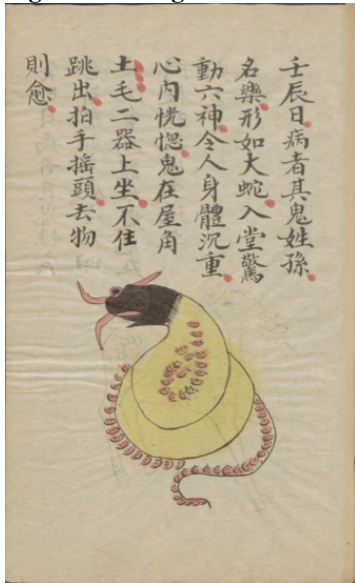 壬辰日病者其鬼姓孫
名樂形如大蛇入堂驚
動六神令人身體沉重
心内恍惚鬼在屋角
土毛二器上坐不住
跳出拍手搖頭去物
則愈